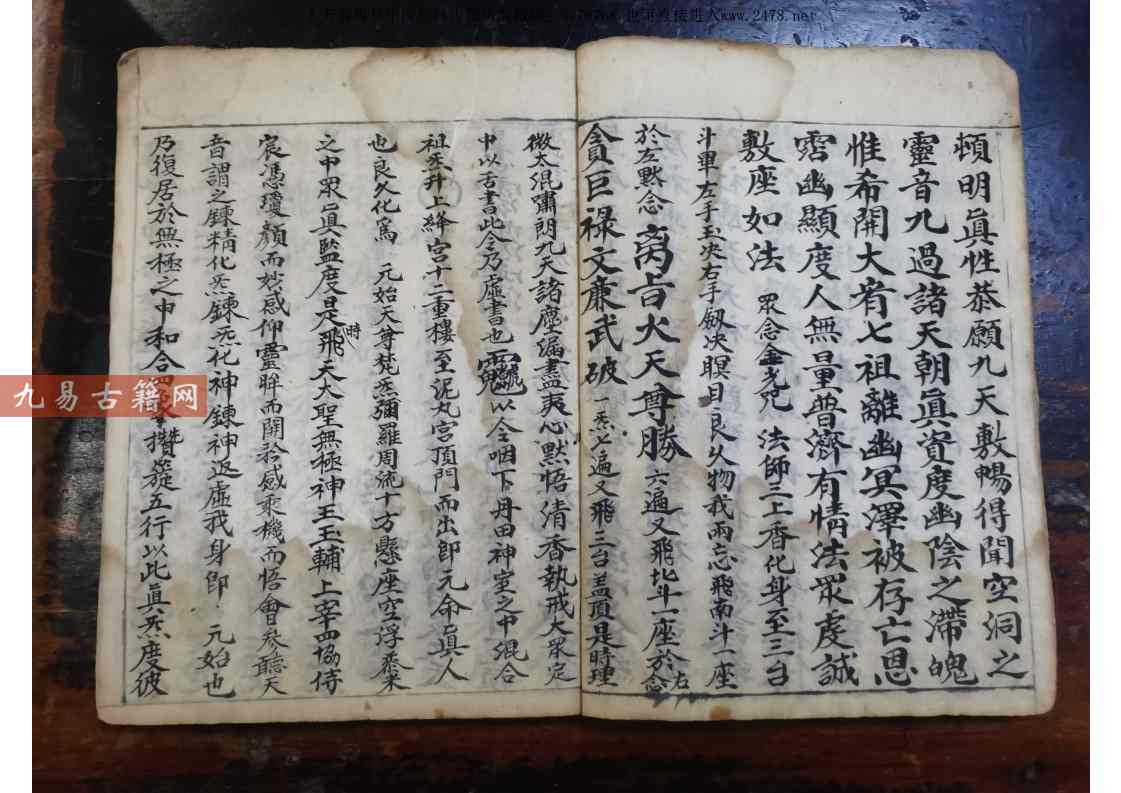 www.2478.net
頓明眞性恭願九天敷暢得聞空洞之
靈音九過諸天朝眞資度幽陰之滯魄
惟希開大宥七祖離幽冥澤被存亡恩
霑幽顯度人無量普濟有情法眾虔誠
敷座如法 眾念金光咒 法師三上香化身至三台
斗罩左手玉决右手劔决瞑目良久物我兩忘飛南斗一座
於左默念 火天尊勝 六遍又飛北斗一座於右念
貪巨禄文廉武破 一炁七遍又飛三台盖頂是時理
微太混嘯朗九天諸塵漏盡夷心默悟清香執戒大眾定
中以舌書此令乃虛書也 以令咽下丹田神室之中混合
祖炁升上絳宮十二重樓至泥丸宮頂門而出即元命眞人
也良久化爲 元始天尊梵炁彌羅周流十方懸座空浮
之中眾眞監度是時飛天大聖無極神王玉輔上宰四協侍
宸憑瓊顏而妙感仰靈眸而開矜感乘機而悟會參聽天
音謂之鍊精化炁鍊炁化神鍊神返虛我身即 元始也
乃復居於無極之中和合四 攢簇五行以此眞炁度彼
九易古籍网